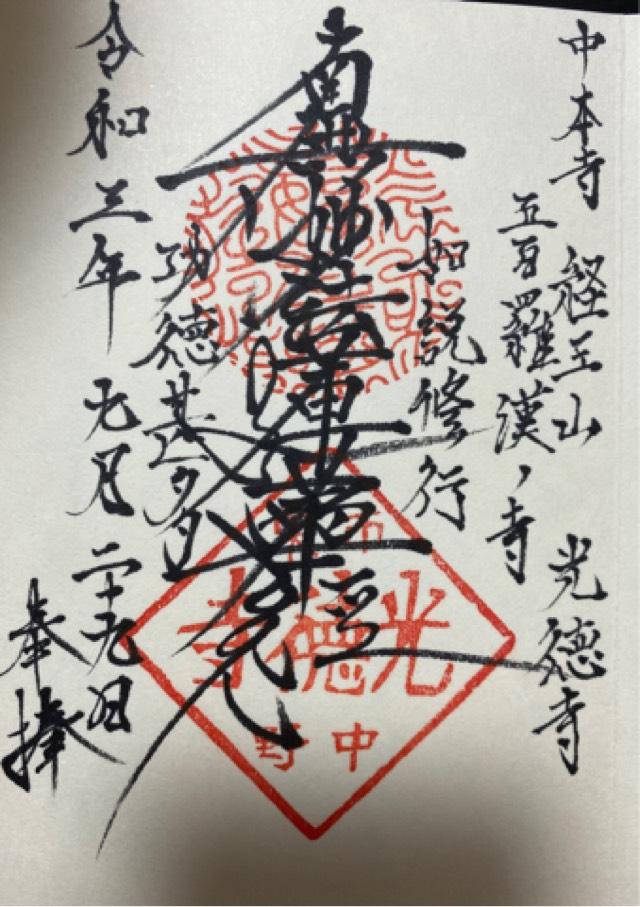 中本寺 経王山 光徳寺
五百羅漢ノ寺
如説修行
南無妙法蓮華経
功徳甚多
令和三年 九月二十九日
奉拝
光徳寺
中野